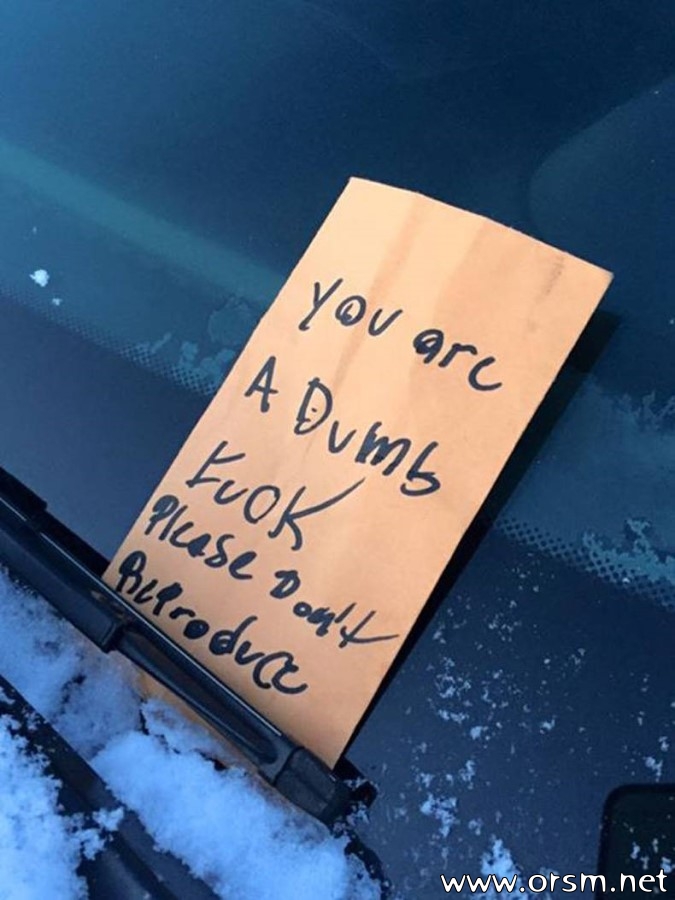 You are
A Dumb
Fuck
Please Don't
Reproduce
www.orsm.net